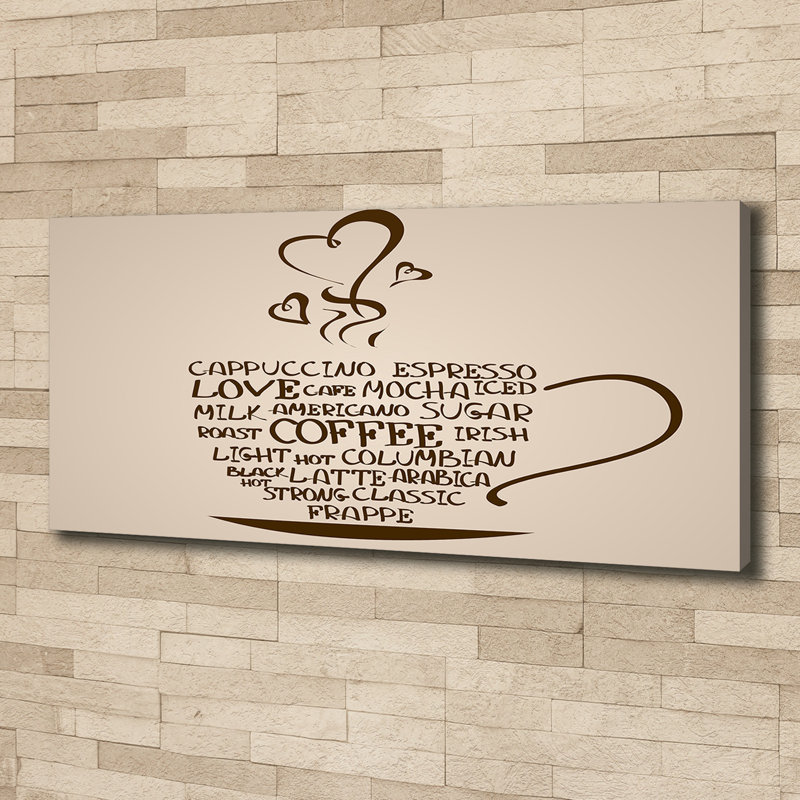 CAPPUCCINO ESPRESSO
LOVE CAFE MOCHA ICED
MILK AMERICANO SUGAR
ROAST COFFEE IRISH
LIGHT HOT COLUMBIAN
BLACK HOT LATTE ARABICA
STRONG CLASSIC
FRAPPE